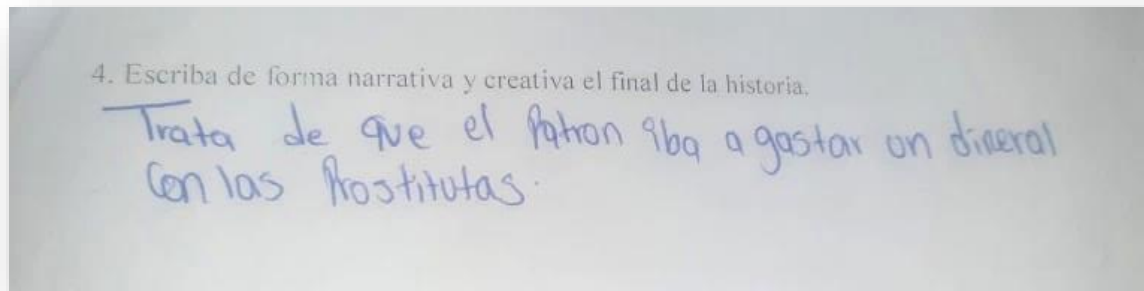 4. Escriba de forma narrativa y creativa el final de la historia.
Trata de que el Patron iba a gastar un dineral
Con las Prostitutas.